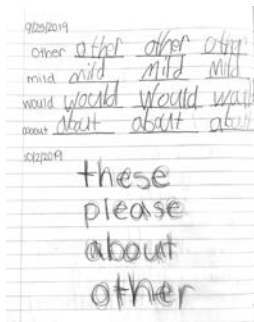 9/25/2019
other other other other
mild mild mild mild
would would would would
about about about about
10/2/2019
these
please
about
other